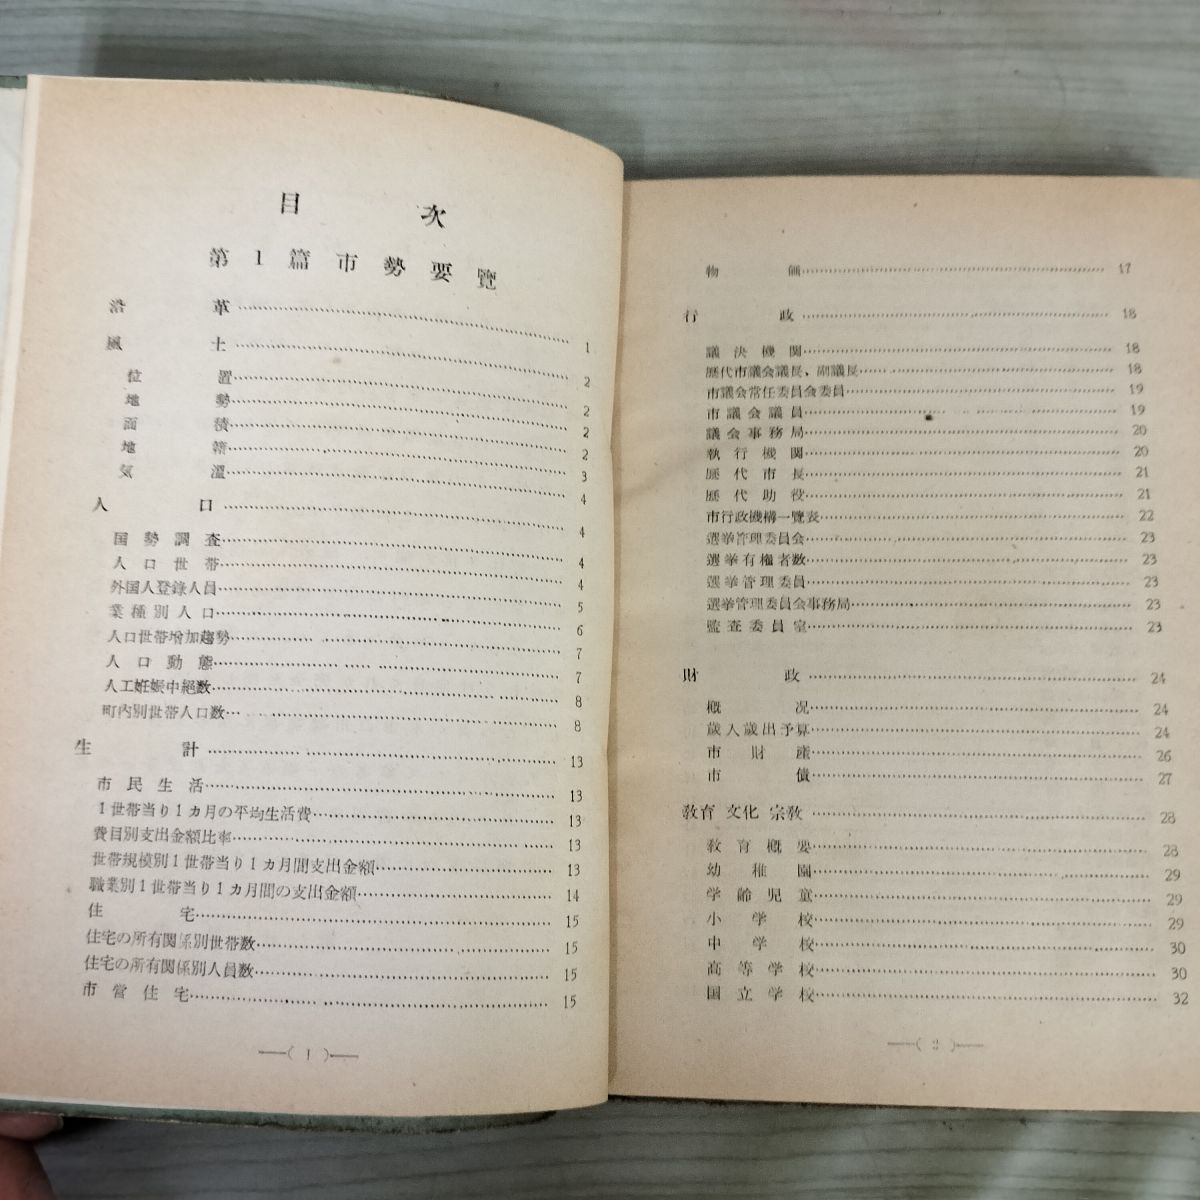 目次
第1篇市勢要覽
沿革 1
風土 2
位置 2
地勢 2
面積 2
地籍 3
気溫 4
人口 4
国勢調査 4
人口世帯 4
外国人登錄人員 5
業種別人口 6
人口世帯增加趨勢 7
人口動態 7
人工妊娠中絕数 8
町內別世帯人口数 8
生計 13
市民生活 13
1世帯当り1カ月の平均生活費 13
費目別支出金額比率 13
世帯規模別1世帯当り1カ月間支出金額 13
職業別1世帯当り1カ月間の支出金額 14
住宅 15
住宅の所有関係別世帯数 15
住宅の所有関係別人員数 15
市営住宅 15
—( 1 )—
物価 17
行政 18
議決機関 18
歷代市議会議長、副議長 18
市議会常任委員会委員 19
市議会議員 19
議会事務局 20
執行機関 20
歷代市長 21
歷代助役 21
市行政機構一覽表 22
選挙管理委員会 23
選挙有権者数 23
選挙管理委員 23
選挙管理委員会事務局 23
監査委員室 23
財政 24
概况 24
歳入歳出予算 24
市財產 26
市債 27
教育 文化 宗教 28
教育概要 28
幼稚園 29
学齢児童 29
小学校 29
中学校 30
高等学校 30
国立学校 32
—( 2 )—